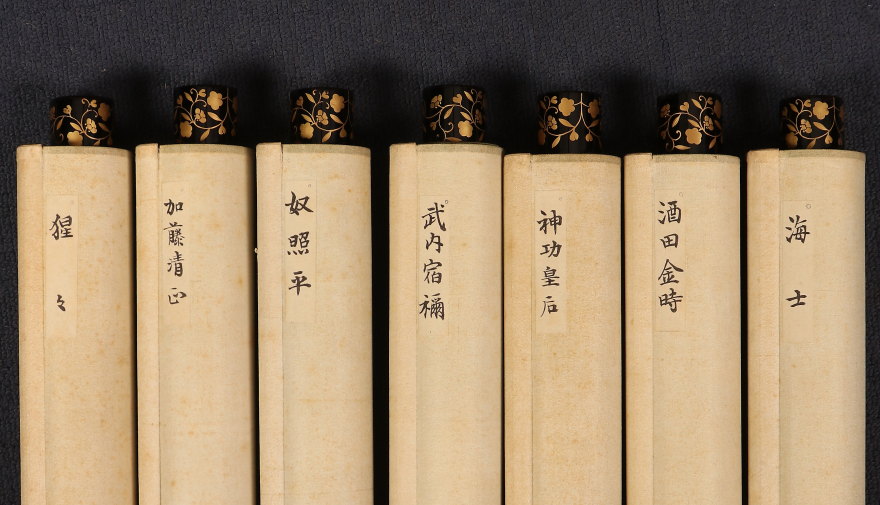 海士
酒田金時
神功皇后
武内宿禰
奴照平
加藤清正
猩々